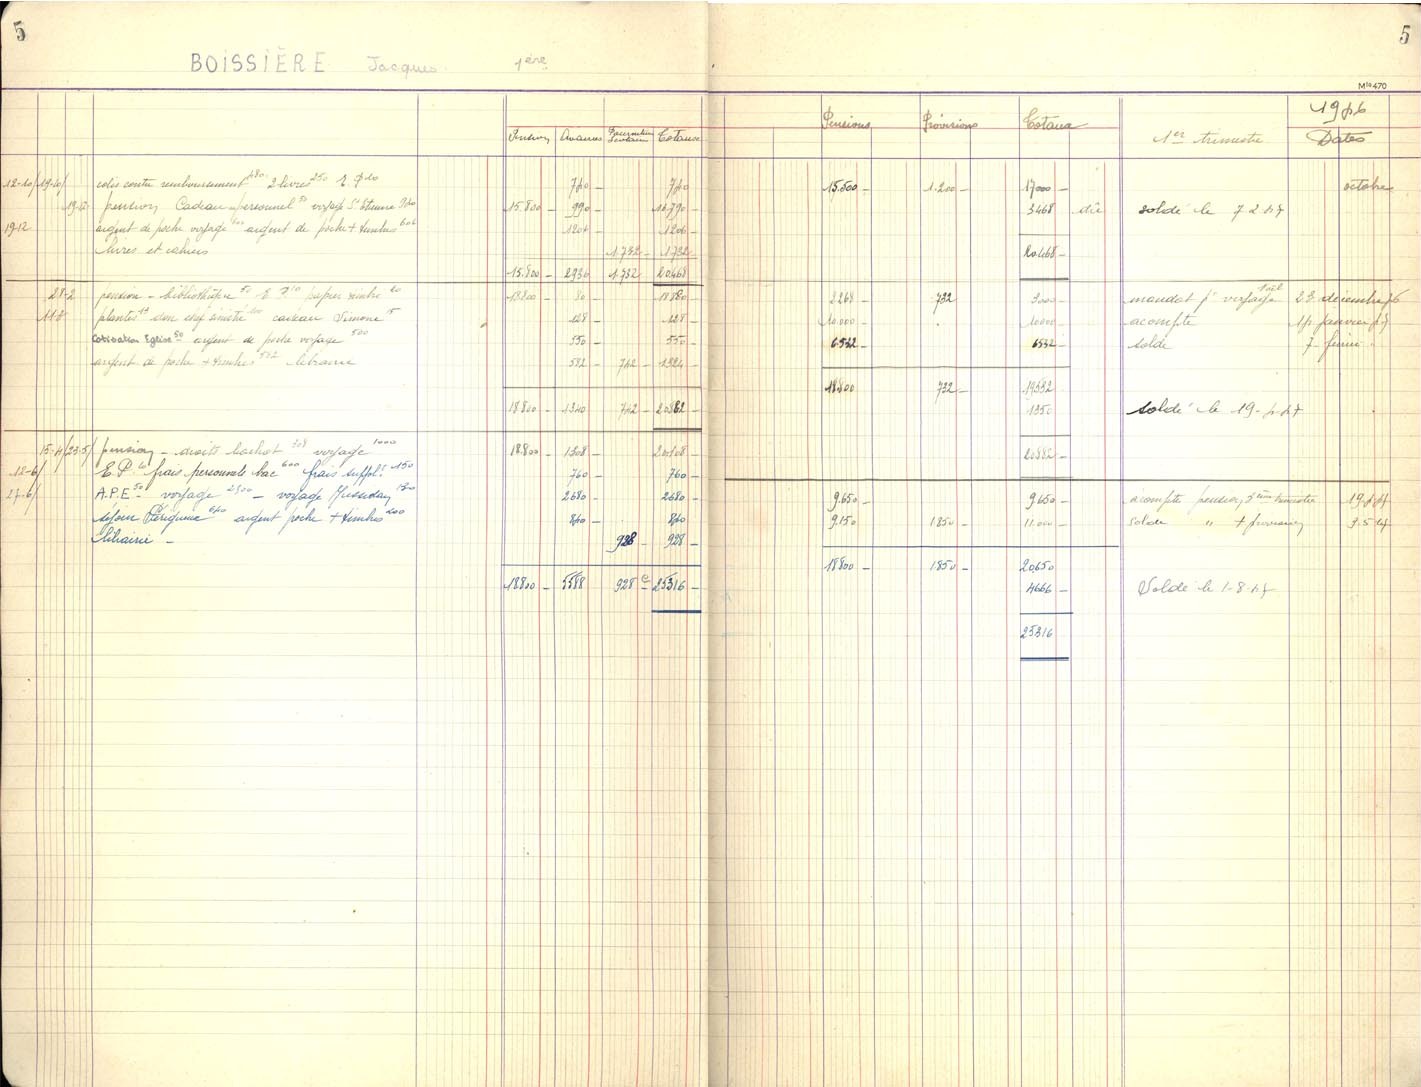 5
BOISSIÈRE Jacques 1ère
Pension Avances Fournitures Scolaires Totaux
12-10/19-10/ colis contre remboursement 480 2 livres 250 E P 10 740 – 740
19-12 pension Cadeau personnel 50 voyage St Etienne 940 15.800 – 990 – 16.790 –
19-12 argent de poche voyage 600 argent de poche + timbres 606 1206 – 1206 –
livres et cahiers 1732 – 1.732 –
15.800 – 2936 1.732 20.468
28-2 pension – bibliothèque 50 E P 10 papier timbre 18.800 – 80 – 18880 –
plantes don 100 cadeau Simone 15 128 – 128 –
Cotisation Eglise 50 argent de poche voyage 500 550 – 550 –
argent de poche + timbres 582 librairie 582 – 742 – 1324 –
18 800 – 1340 742 – 20882 –
15-4/23-5/ pension – droits bachot 308 voyage 1000 18.800 – 1308 – 20.108 –
18-6/ E.P. 10 frais personnels bac 600 frais suppl. 150 760 – 760 –
27-6/ A.P.E 50 voyage 2500 – voyage Mussidan 130 2680 – 2680 –
séjour Périgueux 640 argent poche + timbres 200 840 – 840 –
librairie – 928 – 928 –
18800 – 5588 928 – 25316 –
5
Mle 470
Pensions Provisions Totaux 1er trimestre 1946 Dates
15.800 – 1.200 – 17000 – octobre
3468 dû soldé le 7 2 47
20.468 –
2268 – 732 3000 – mandat pr voyage Noël 23 décembre 46
10.000 – 10000 – acompte 14 janvier 47
6.532 – 6532 – solde 7 février
18.800 732 – 19532
1350 soldé le 19-4-47
20882 –
9.650 – 9.650 – acompte pension 3ème trimestre 19-4-47
9.150 1850 – 11.000 – solde " + provision 9.5.47
18800 – 1850 – 20.650
4666 – Soldé le 1-8-47
25316